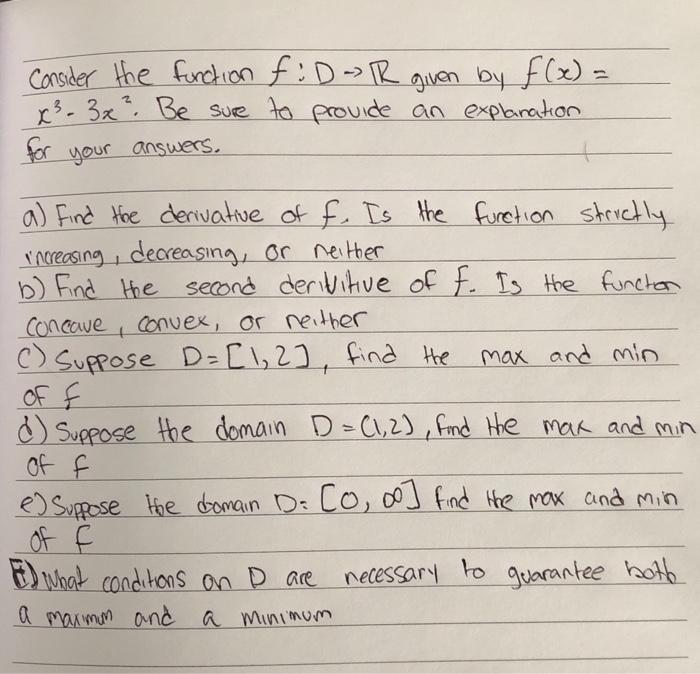 Consider the function f: D → ℝ given by f(x) =
x³ - 3x². Be sure to provide an explanation
for your answers.
a) Find the derivative of f. Is the function strictly
increasing, decreasing, or neither
b) Find the second derivitive of f. Is the function
concave, convex, or neither
c) Suppose D = [1,2], find the max and min
of f
d) Suppose the domain D = (1,2), find the max and min
of f
e) Suppose the domain D = [0, ∞] find the max and min
of f
f) What conditions on D are necessary to guarantee both
a maximum and a minimum